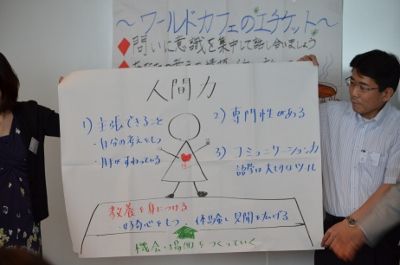 ～ワールドカフェのエチケット～
◆問いに意識を集中して話し合いましょう
人間力
1) 主張できること
・自分の考えをもつ
・肝がすわっている
2) 専門性がある
3) コミュニケーション力
語学は大切なツール
教養を身につける
好奇心をもつ・体験し見聞を広げる
機会・場面をつくっていく